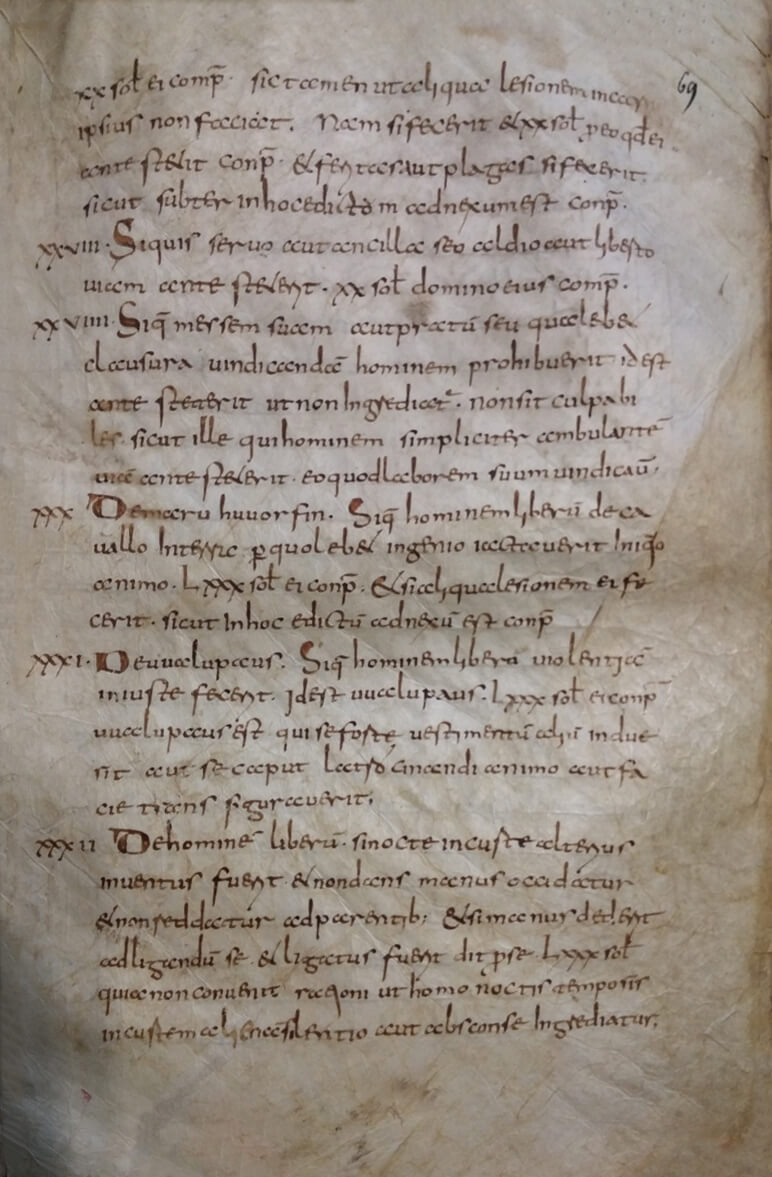 69
xx sol ei comp̄. sic tamen ut aliquae lesionem in
ipsius non faciat. Nam si fecerit et xx sol p eo qd ei
ante stetit conp̄. et feritas aut plagas si fecerit
sicut subter in hoc edicto m adnexum est conp̄.
xxviii. Siquis servo aut ancillae seo aldio aut liberto
uiam ante steterit. xx sol domino eius comp̄.
xxviiii. Siq̄ messem suam aut pratū seu qualebet
clausura uindicandā hominem prohibuerit id est
ante steterit ut non Ingrediat. non sit culpabi
les sicut ille qui hominem simpliciter ambulantē
uiā ante steterit. eo quod laborem suum uindicaū.
xxx Demaru huuorfin. Siq̄ hominem liberū de ca
uallo In terra p quolebet ingenio iactauerit Iniquo
animo. Lxxx sol ei conp̄. et si aliquae lesionem ei fe
cerit. sicut In hoc edictū adnexū est conp̄
xxxi. De uualupaus. Siq̄ hominem liberū uiolentiā
iniuste fecerit. Idest uualupaus. Lxxx sol ei conp̄
uualupaus est qui se foste uestimentū aliū indue
rit aut se caput latro cinandi animo aut fa
cie trans figurauerit.
xxxii Dehominē liberū. si nocte in curte alterius
inuentus fuerit et non dans manus occidatur
et non reddatur ad parentib; et si manus dederit
ad ligandū se et ligatus fuerit dit p se Lxxx sol
quia non conuenit rationi ut homo noctis temporis
in curtem alienā silentio aut absconse Ingrediatur.